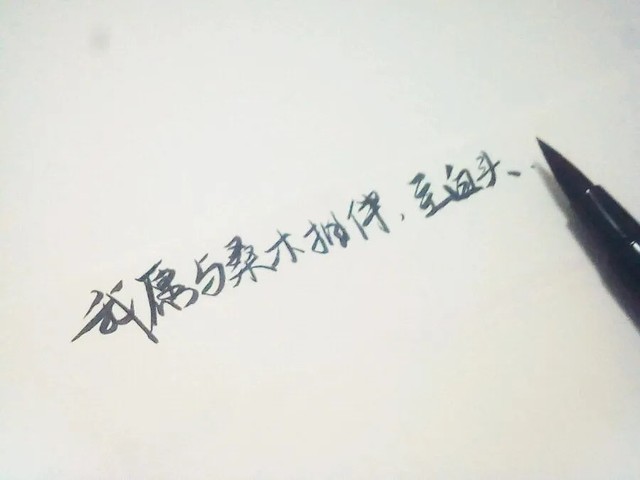 我愿与桑木相伴，至白头、